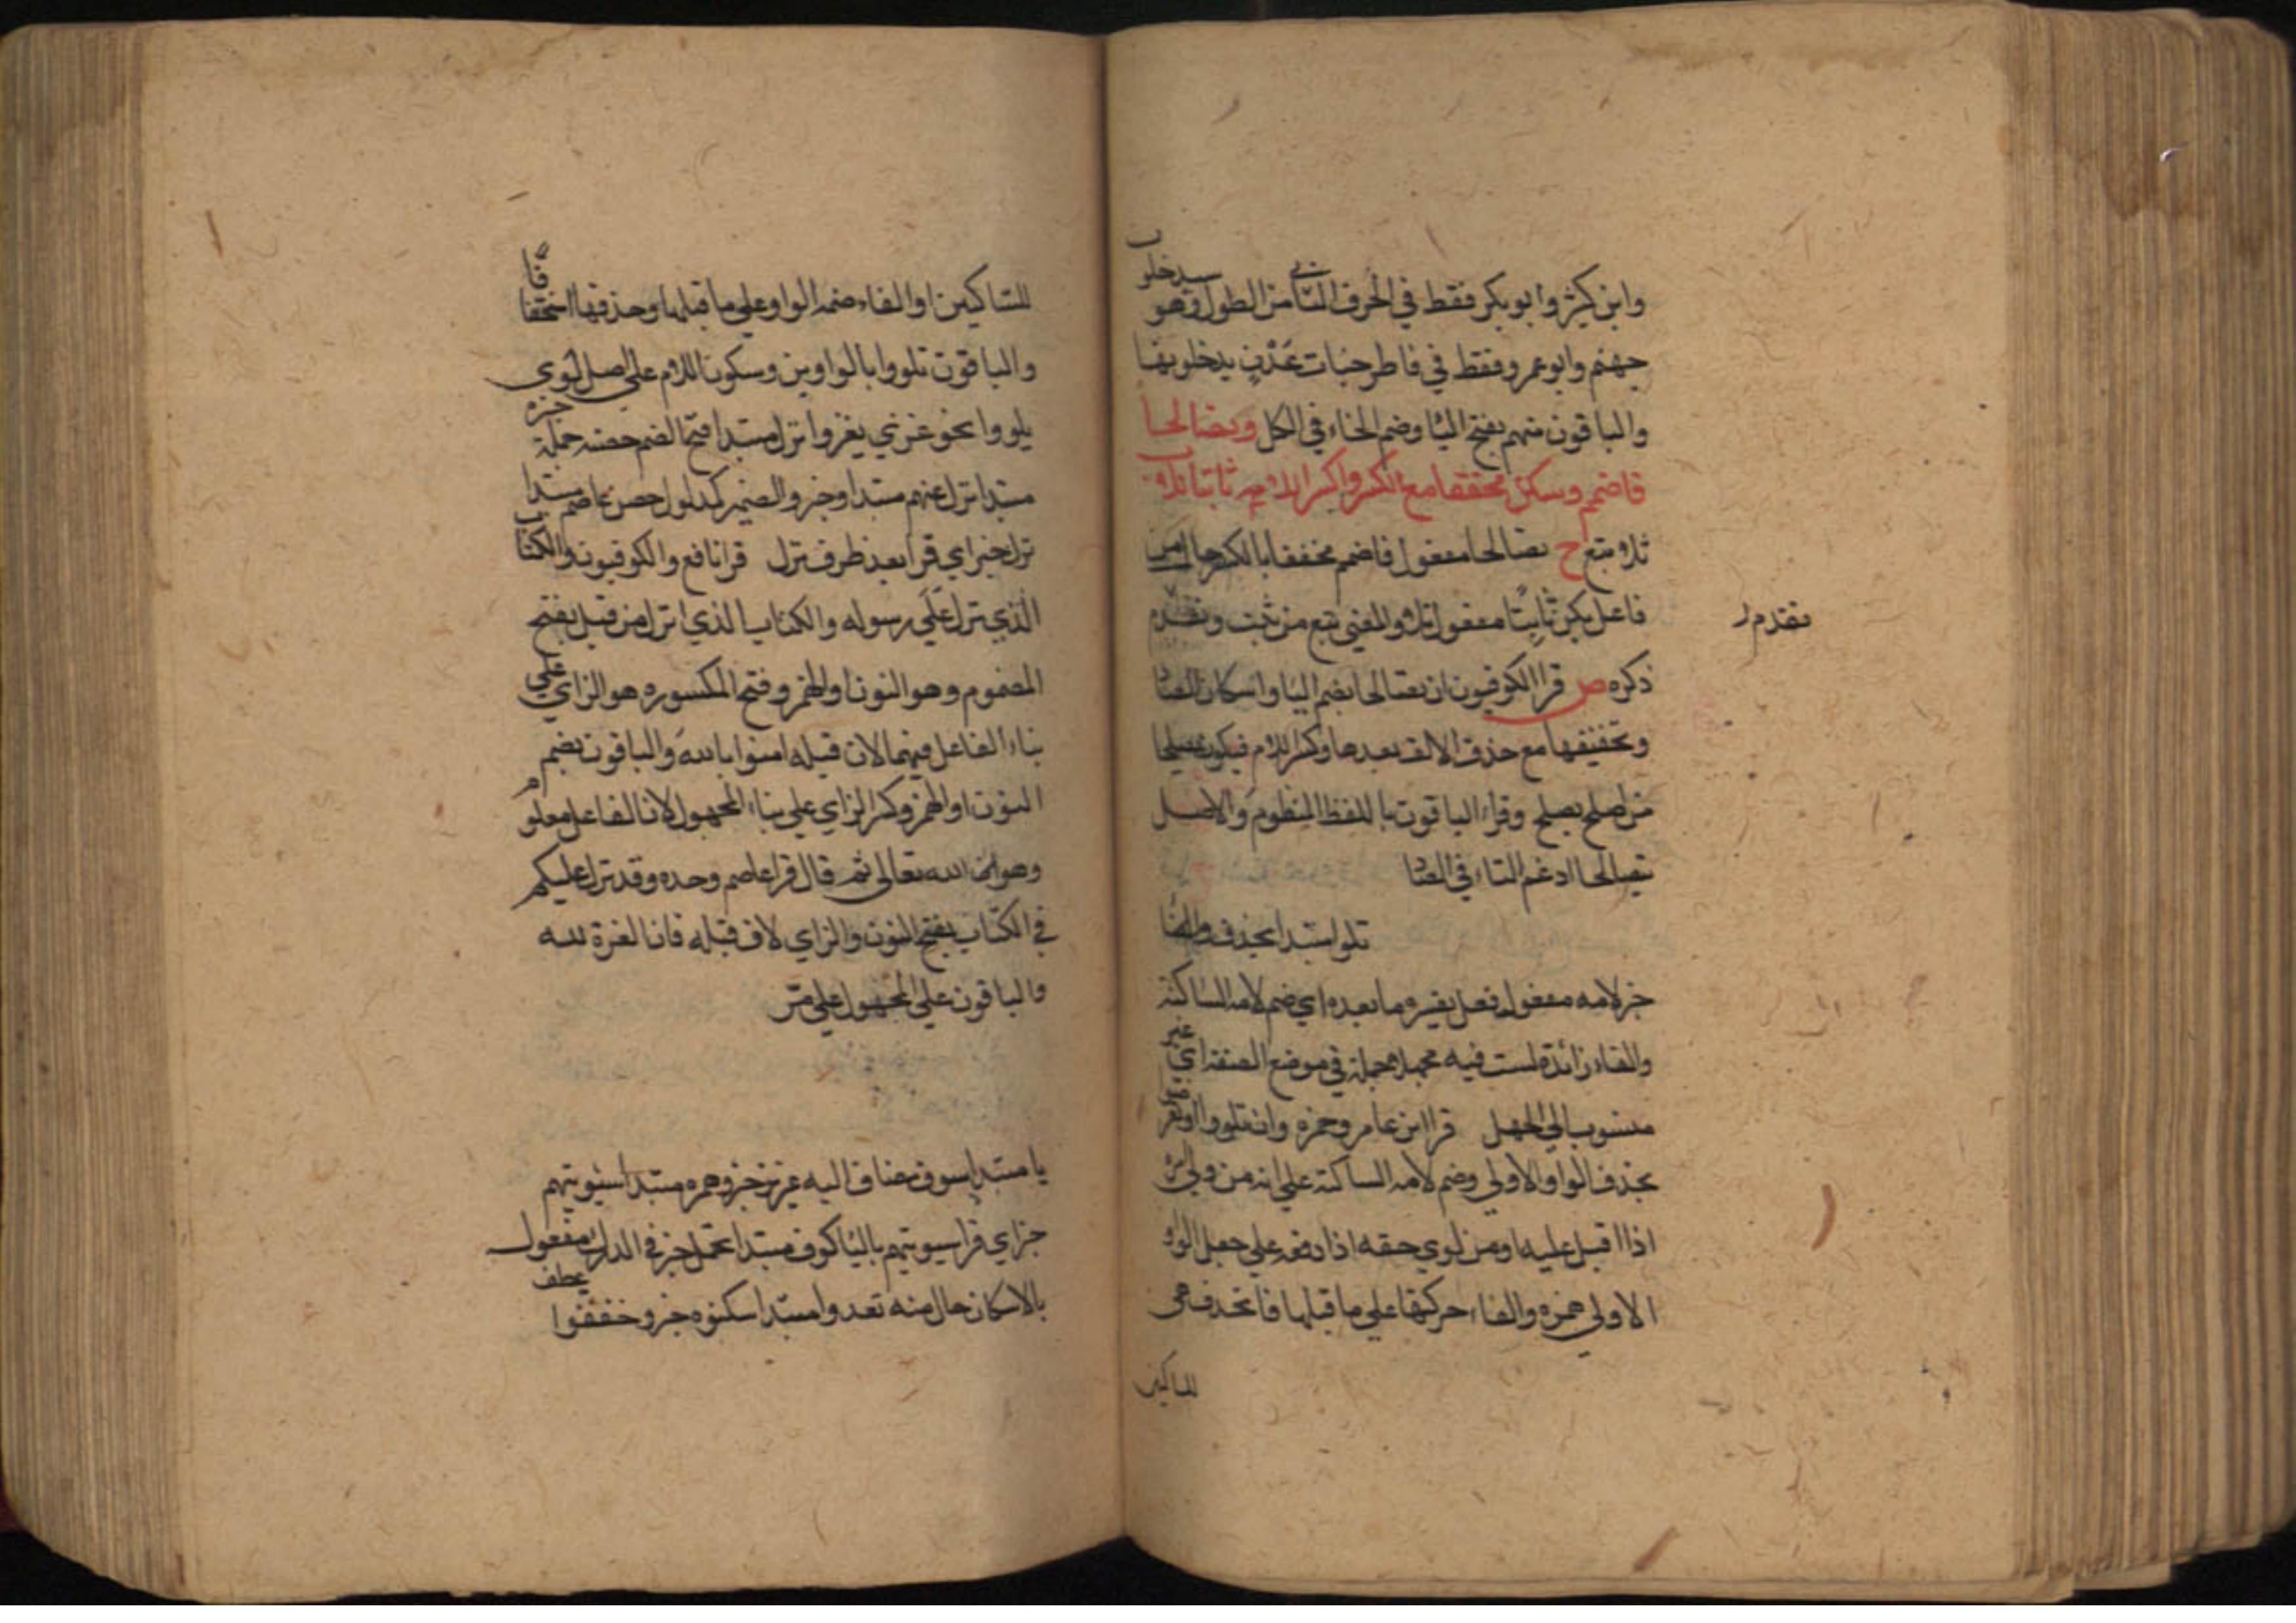 وابن كثير وابو بكر فقط في الحرف الثاني من الطول وهو سيدخلون
جهنم وابو عمرو فقط في فاطر جنات عدن يدخلونها
والباقون منهم بفتح اليا وضم الخاء في الكل ويصالحا
فاضمم وسكن مخففا مع الكسر واكسر لامه ثابتا تلا
تلا تبع ح يصالحا مفعول فاضمم مخففا بالكسر حال من
فاعل سكن ثابتا مفعول تلا والمعنى تبع من ثبت وتقدم
تقدم ر
ذكره ص قرا الكوفيون ان يصالحا بضم اليا واسكان الصاد
وتخفيفها مع حذف الالف بعدها وكسر اللام فيكون يصلحا
من اصلح يصلح وقراء الباقون باللفظ المنظوم والاصل
يتصالحا ادغم التاء في الصاد
تلوا مبتدا بحذف الواو
خبر لامه مفعول فعل يفسره ما بعده اي ضم لامه الساكنة
والفاء زائدة لست فيه مجهلا جملة في موضع الصفة اي غير
منسوب الى الجهل قرا ابن عامر وحمزة وان تلووا او تعرضوا
بحذف الواو الاولى وضم لامه الساكنة على انه من ولي الامر
اذا اقبل عليه او من لوي حقه اذا دفعه على جعل الواو
الاولى همزة والقاء حركتها على ما قبلها فانحذف هي
للساكنين
للساكنين او القاء ضمة الواو على ما قبلها وحذفها استخفافا
والباقون تلووا بالواوين وسكون اللام على اصل لوى
يلووا نحو غزى يغزوا نزل مبتدا فتح الضم حصنه جملة خبره
مبتدا نزل عنهم مبتدا وخبر والضمير لمدلول حصن عاصم مبتدا
نزل خبر اي قرا بعد ظرف نزل قرا نافع والكوفيون والكتاب
الذي نزل على رسوله والكتاب الذي انزل من قبل بفتح
المضموم وهو النون او الهمز وفتح المكسوره هو الزاي على
بناء الفاعل فيهما لان قبله امنوا بالله والباقون بضم
النون او الهمز وكسر الزاي على بناء المجهول لان الفاعل معلوم
وهو الله تعالى ثم قال قرا عاصم وحده وقد نزل عليكم
في الكتاب بفتح النون والزاي لان قبله فان العزة لله
والباقون على المجهول على مر
يا مبتدا سوف مضاف اليه عزيز خبر وحمزه مبتدا سنوتيهم
خبر اي قرا سيوتيهم باليا كوف مبتدا تحمل خبر في الدرك مفعول
بالاسكان حال منه تعدوا مبتدا سكنوه خبر وخففوا عطف